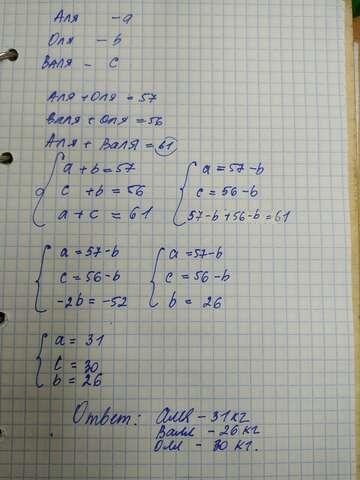 Аля - a
Оля - b
Валя - c
Аля + Оля = 57
Валя + Оля = 56
Аля + Валя = 61
a + b = 57
c + b = 56
a + c = 61
a = 57 - b
c = 56 - b
57 - b + 56 - b = 61
a = 57 - b
c = 56 - b
-2b = -52
a = 57 - b
c = 56 - b
b = 26
a = 31
c = 30
b = 26
Ответ: Аля - 31 кг
Валя - 26 кг
Оля - 30 кг.